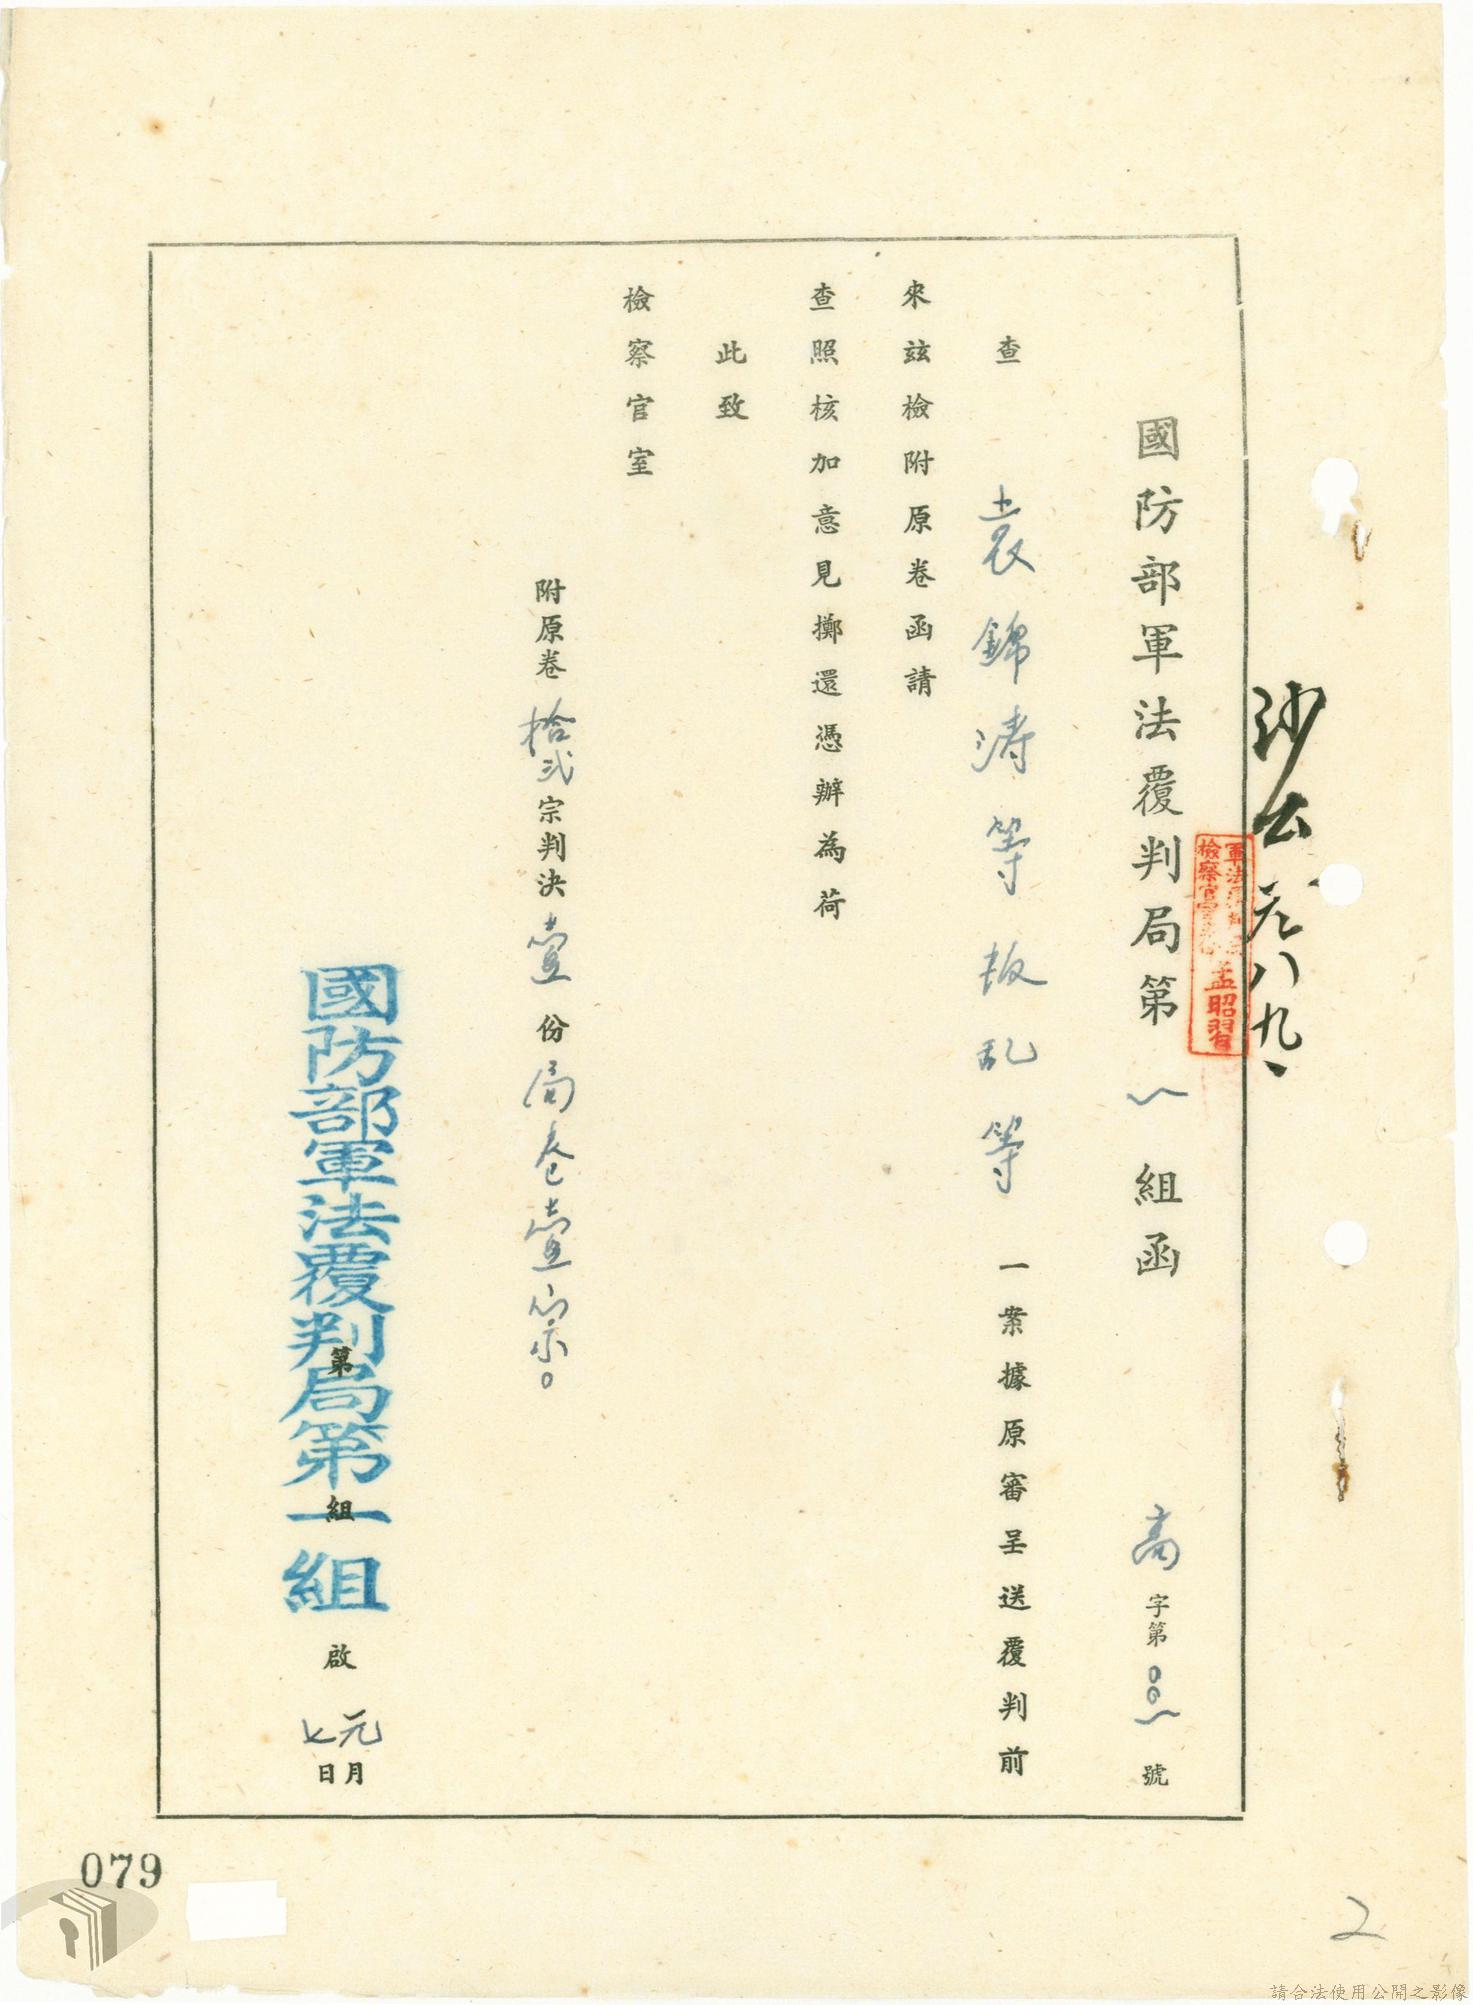 國防部軍法覆判局第一組函　高字第001號
查　袁錦濤等叛乱等　一案據原審呈送覆判前
來玆檢附原卷函請
查照核加意見擲還憑辦為荷
此致
檢察官室
附原卷拾弍宗判決壹份局卷壹宗。
國防部軍法覆判局第一組
第　組　啟　元月七日
軍法覆判局
檢察官
孟昭習
八九
079
2
請合法使用公開之影像